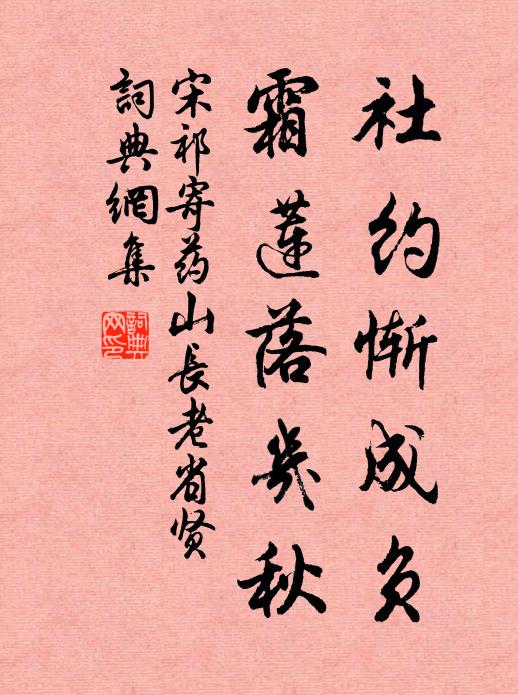 社约惭成负
霜莲落几秋
宋祁寄药山長老省贤
詞典網集
詞典網印